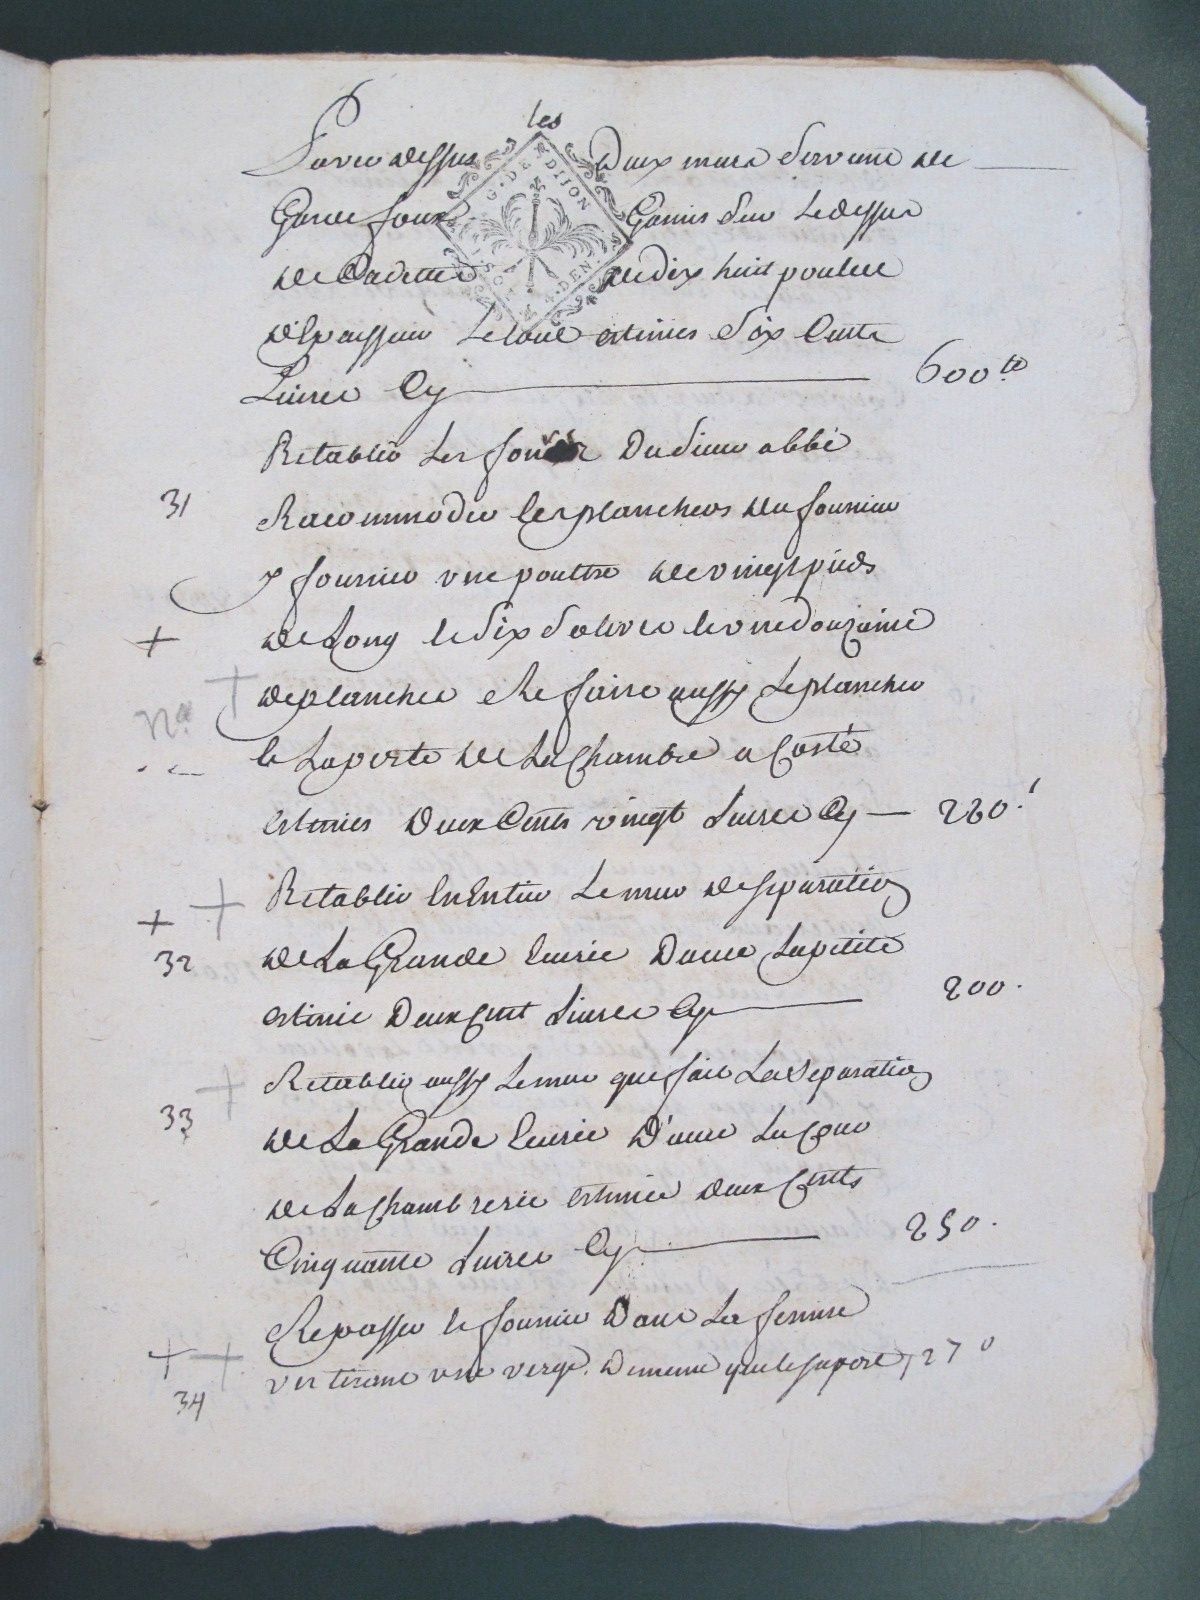 les
Paver dessus Deux murs servant de
Garde foux Garnis sur Le dessus
de Cadettes de dix huit poulce
d'Epaisseur Le tout estimés Six Cents
Livres Cy 600tt
Retablir Les fours Dudieur abbé
31 Racommoder les planchers du fournier
y fournier une pouttre de vingt pieds
+ de Long de dix solives et une douzaine
+ de planches Refaire aussy Le plancher
Na et La porte de La Chambre a Costé
estimés Deux Cents vingt Livres Cy 220.l
+ + Retablir En Entier Le mur de separation
32 de La Grande Ecurie Davec La petite
estimé Deux Cent Livres Cy 200.
+ Retablir aussy Le mur que fait La Separation
33 de La Grande Ecurie D'avec La Cour
de La Chambrerie Estimée deux Cents
Cinquante Livres Cy 250.
Repasser le fournier Dans La ferme
+ + une verge. De meme que le
34 270
G. DE DIJON
SOL 4. DEN.